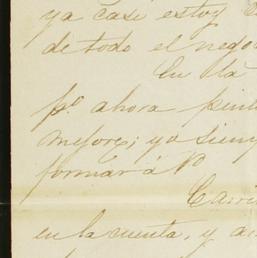 ya casi estoy
de todo el nego
En la
pº ahora
mejore; yo siem
formar á Vd
Carri
en la cuenta, y a